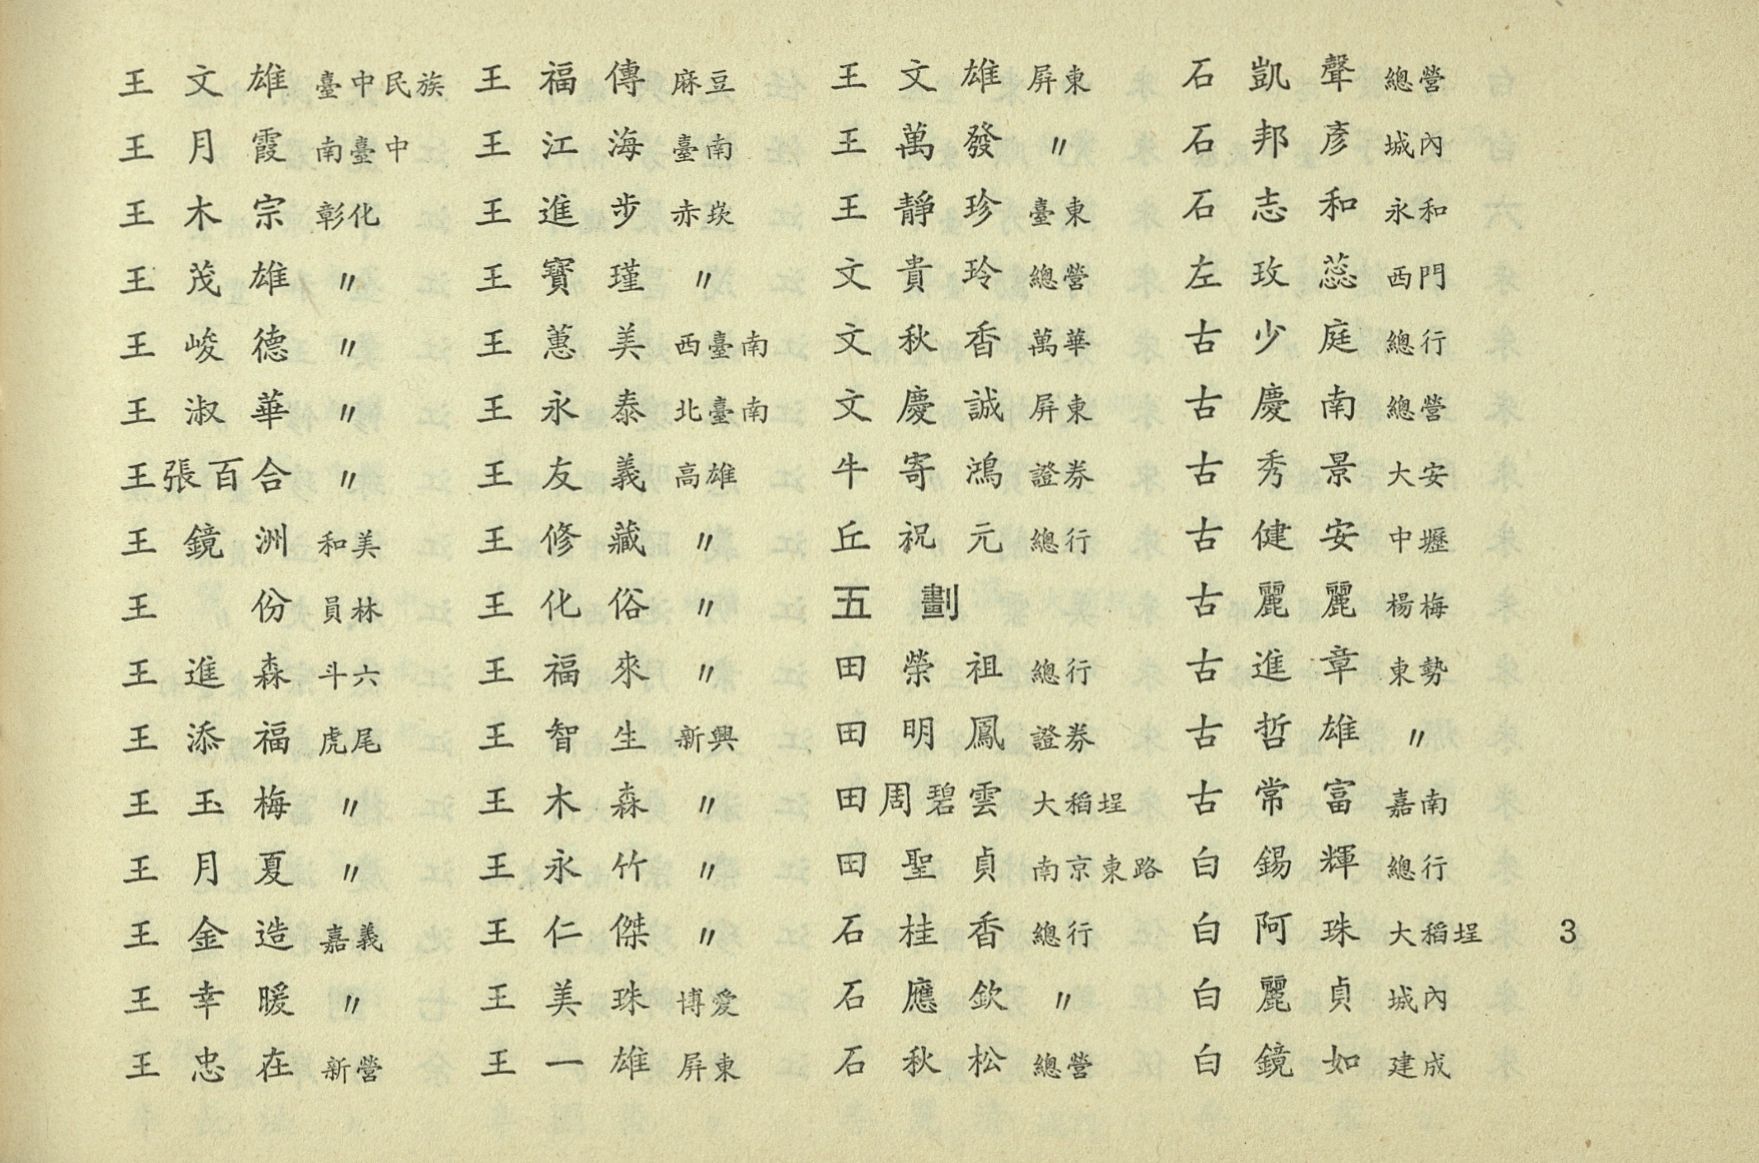 王文雄 臺中民族
王月霞 南臺中
王木宗 彰化
王茂雄 〃
王峻德 〃
王淑華 〃
王張百合 〃
王鏡洲 和美
王份 員林
王進森 斗六
王添福 虎尾
王玉梅 〃
王月夏 〃
王金造 嘉義
王幸暖 〃
王忠在 新營
王福傳 麻豆
王江海 臺南
王進步 赤崁
王寶瑾 〃
王蕙美 西臺南
王永泰 北臺南
王友義 高雄
王修藏 〃
王化俗 〃
王福來 〃
王智生 新興
王木森 〃
王永竹 〃
王仁傑 〃
王美珠 博愛
王一雄 屏東
王文雄 屏東
王萬發 〃
王靜珍 臺東
文貴玲 總營
文秋香 萬華
文慶誠 屏東
牛寄鴻 證券
丘祝元 總行
五劃
田榮祖 總行
田明鳳 證券
田周碧雲 大稻埕
田聖貞 南京東路
石桂香 總行
石應欽 〃
石秋松 總營
石凱聲 總營
石邦彥 城內
石志和 永和
左玫蕊 西門
古少庭 總行
古慶南 總營
古秀景 大安
古健安 中壢
古麗麗 楊梅
古進章 東勢
古哲雄 〃
古常富 嘉南
白錫輝 總行
白阿珠 大稻埕
白麗貞 城內
白鏡如 建成
3